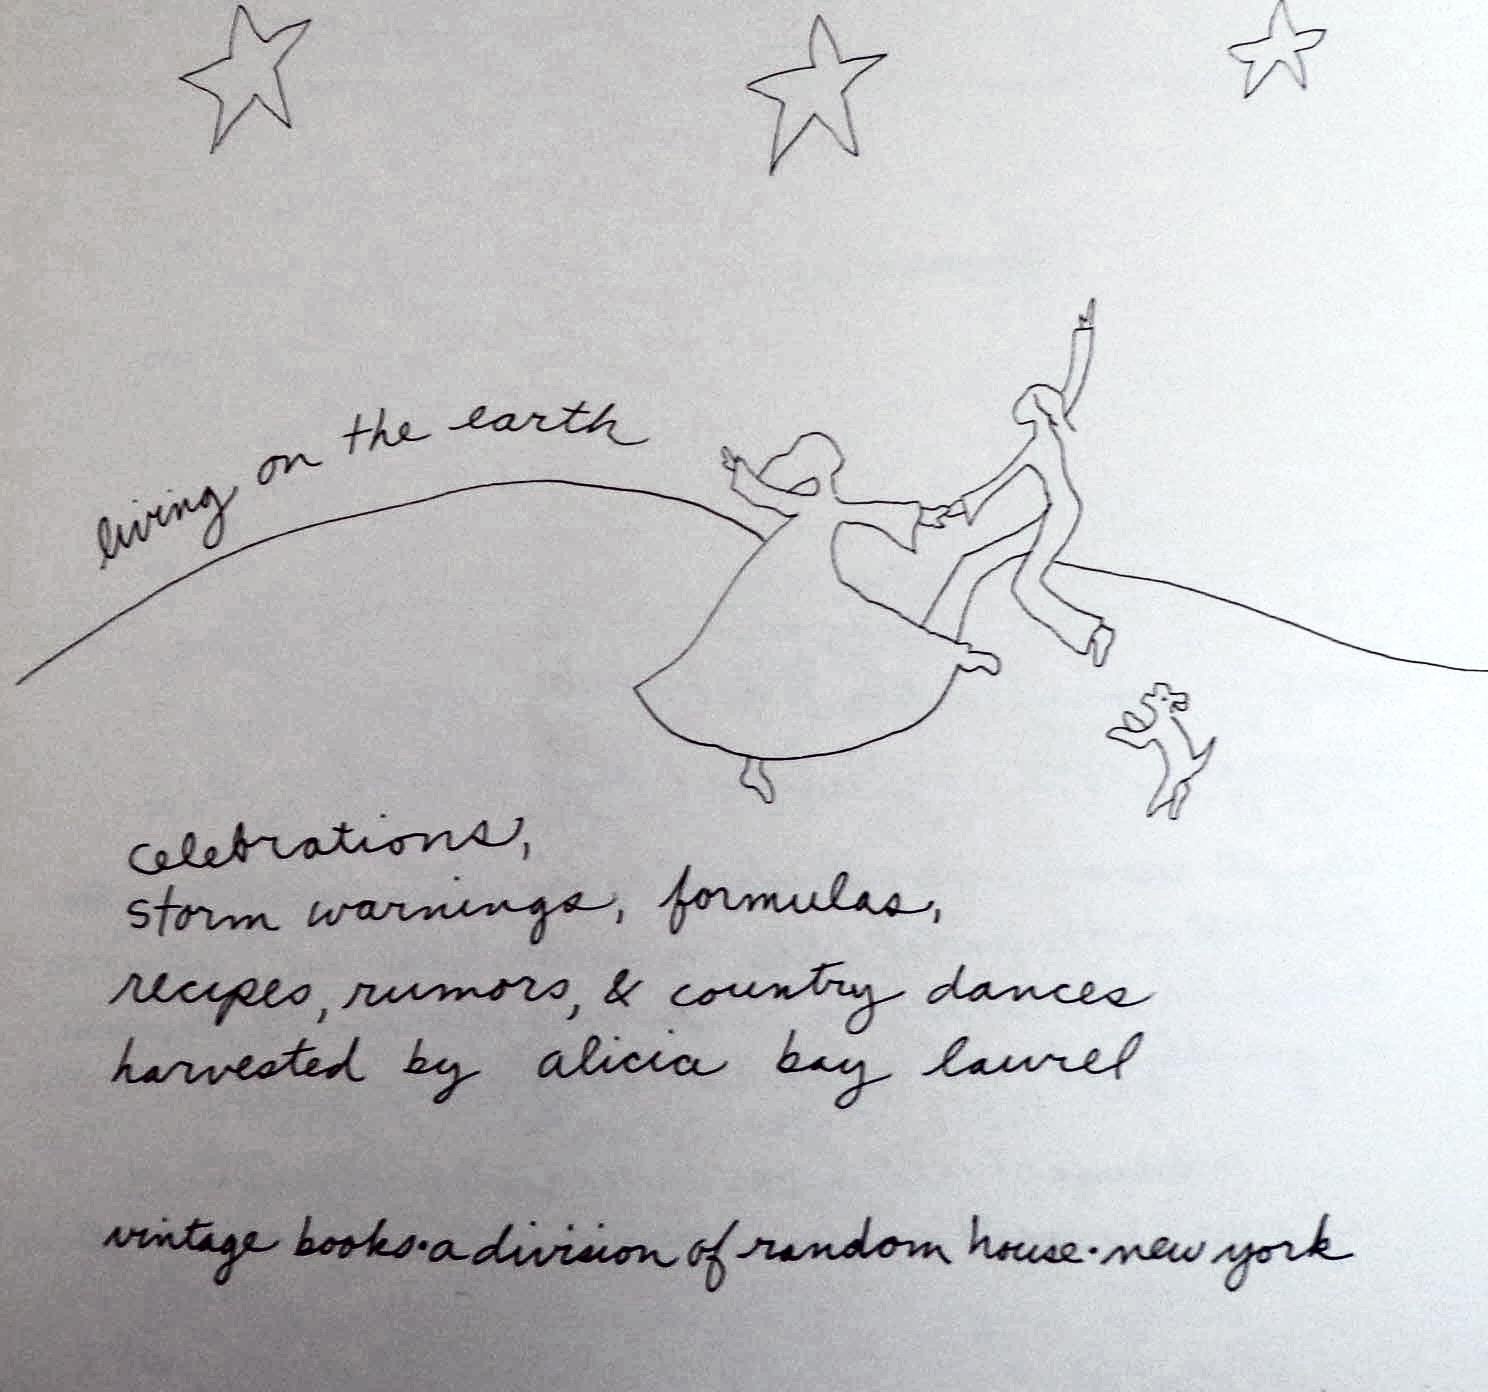 living on the earth
celebrations,
storm warnings, formulas,
recipes, rumors, & country dances
harvested by alicia bay laurel
vintage books·a division of random house·new york